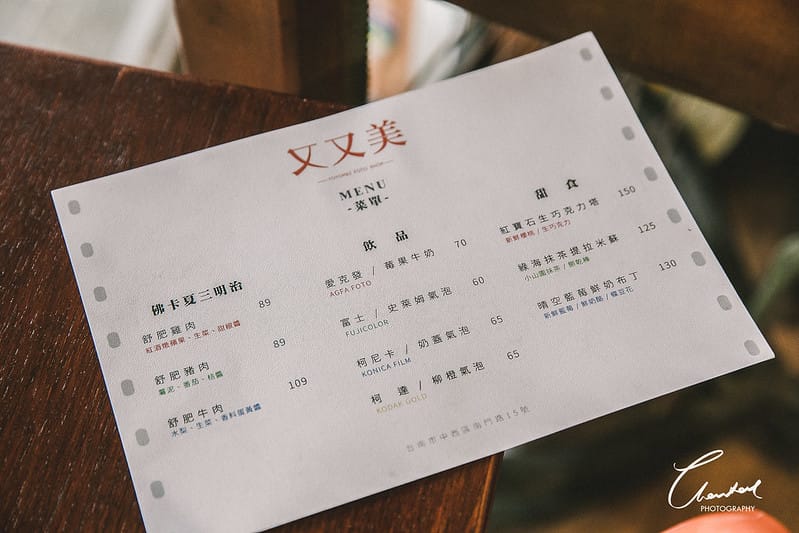 又又美
YOYOMEI FOTO SHOP
MENU
-菜單-
佛卡夏三明治
舒肥雞肉 89
紅酒燉蘋果、生菜、甜椒醬
舒肥豬肉 89
薯泥、番茄、桔醬
舒肥牛肉 109
水梨、生菜、香料蛋黃醬
飲品
愛克發 / 莓果牛奶 70
AGFA FOTO
富士 / 史萊姆氣泡 60
FUJICOLOR
柯尼卡 / 奶蓋氣泡 65
KONICA FILM
柯達 / 柳橙氣泡 65
KODAK GOLD
甜食
紅寶石生巧克力塔 150
新鮮櫻桃 / 生巧克力
綠海抹茶提拉米蘇 125
小山園抹茶 /
晴空藍莓鮮奶布丁 130
新鮮藍莓 / 鮮奶酪 / 蝶豆花
台南市中西區南門路15號
PHOTOGRAPHY